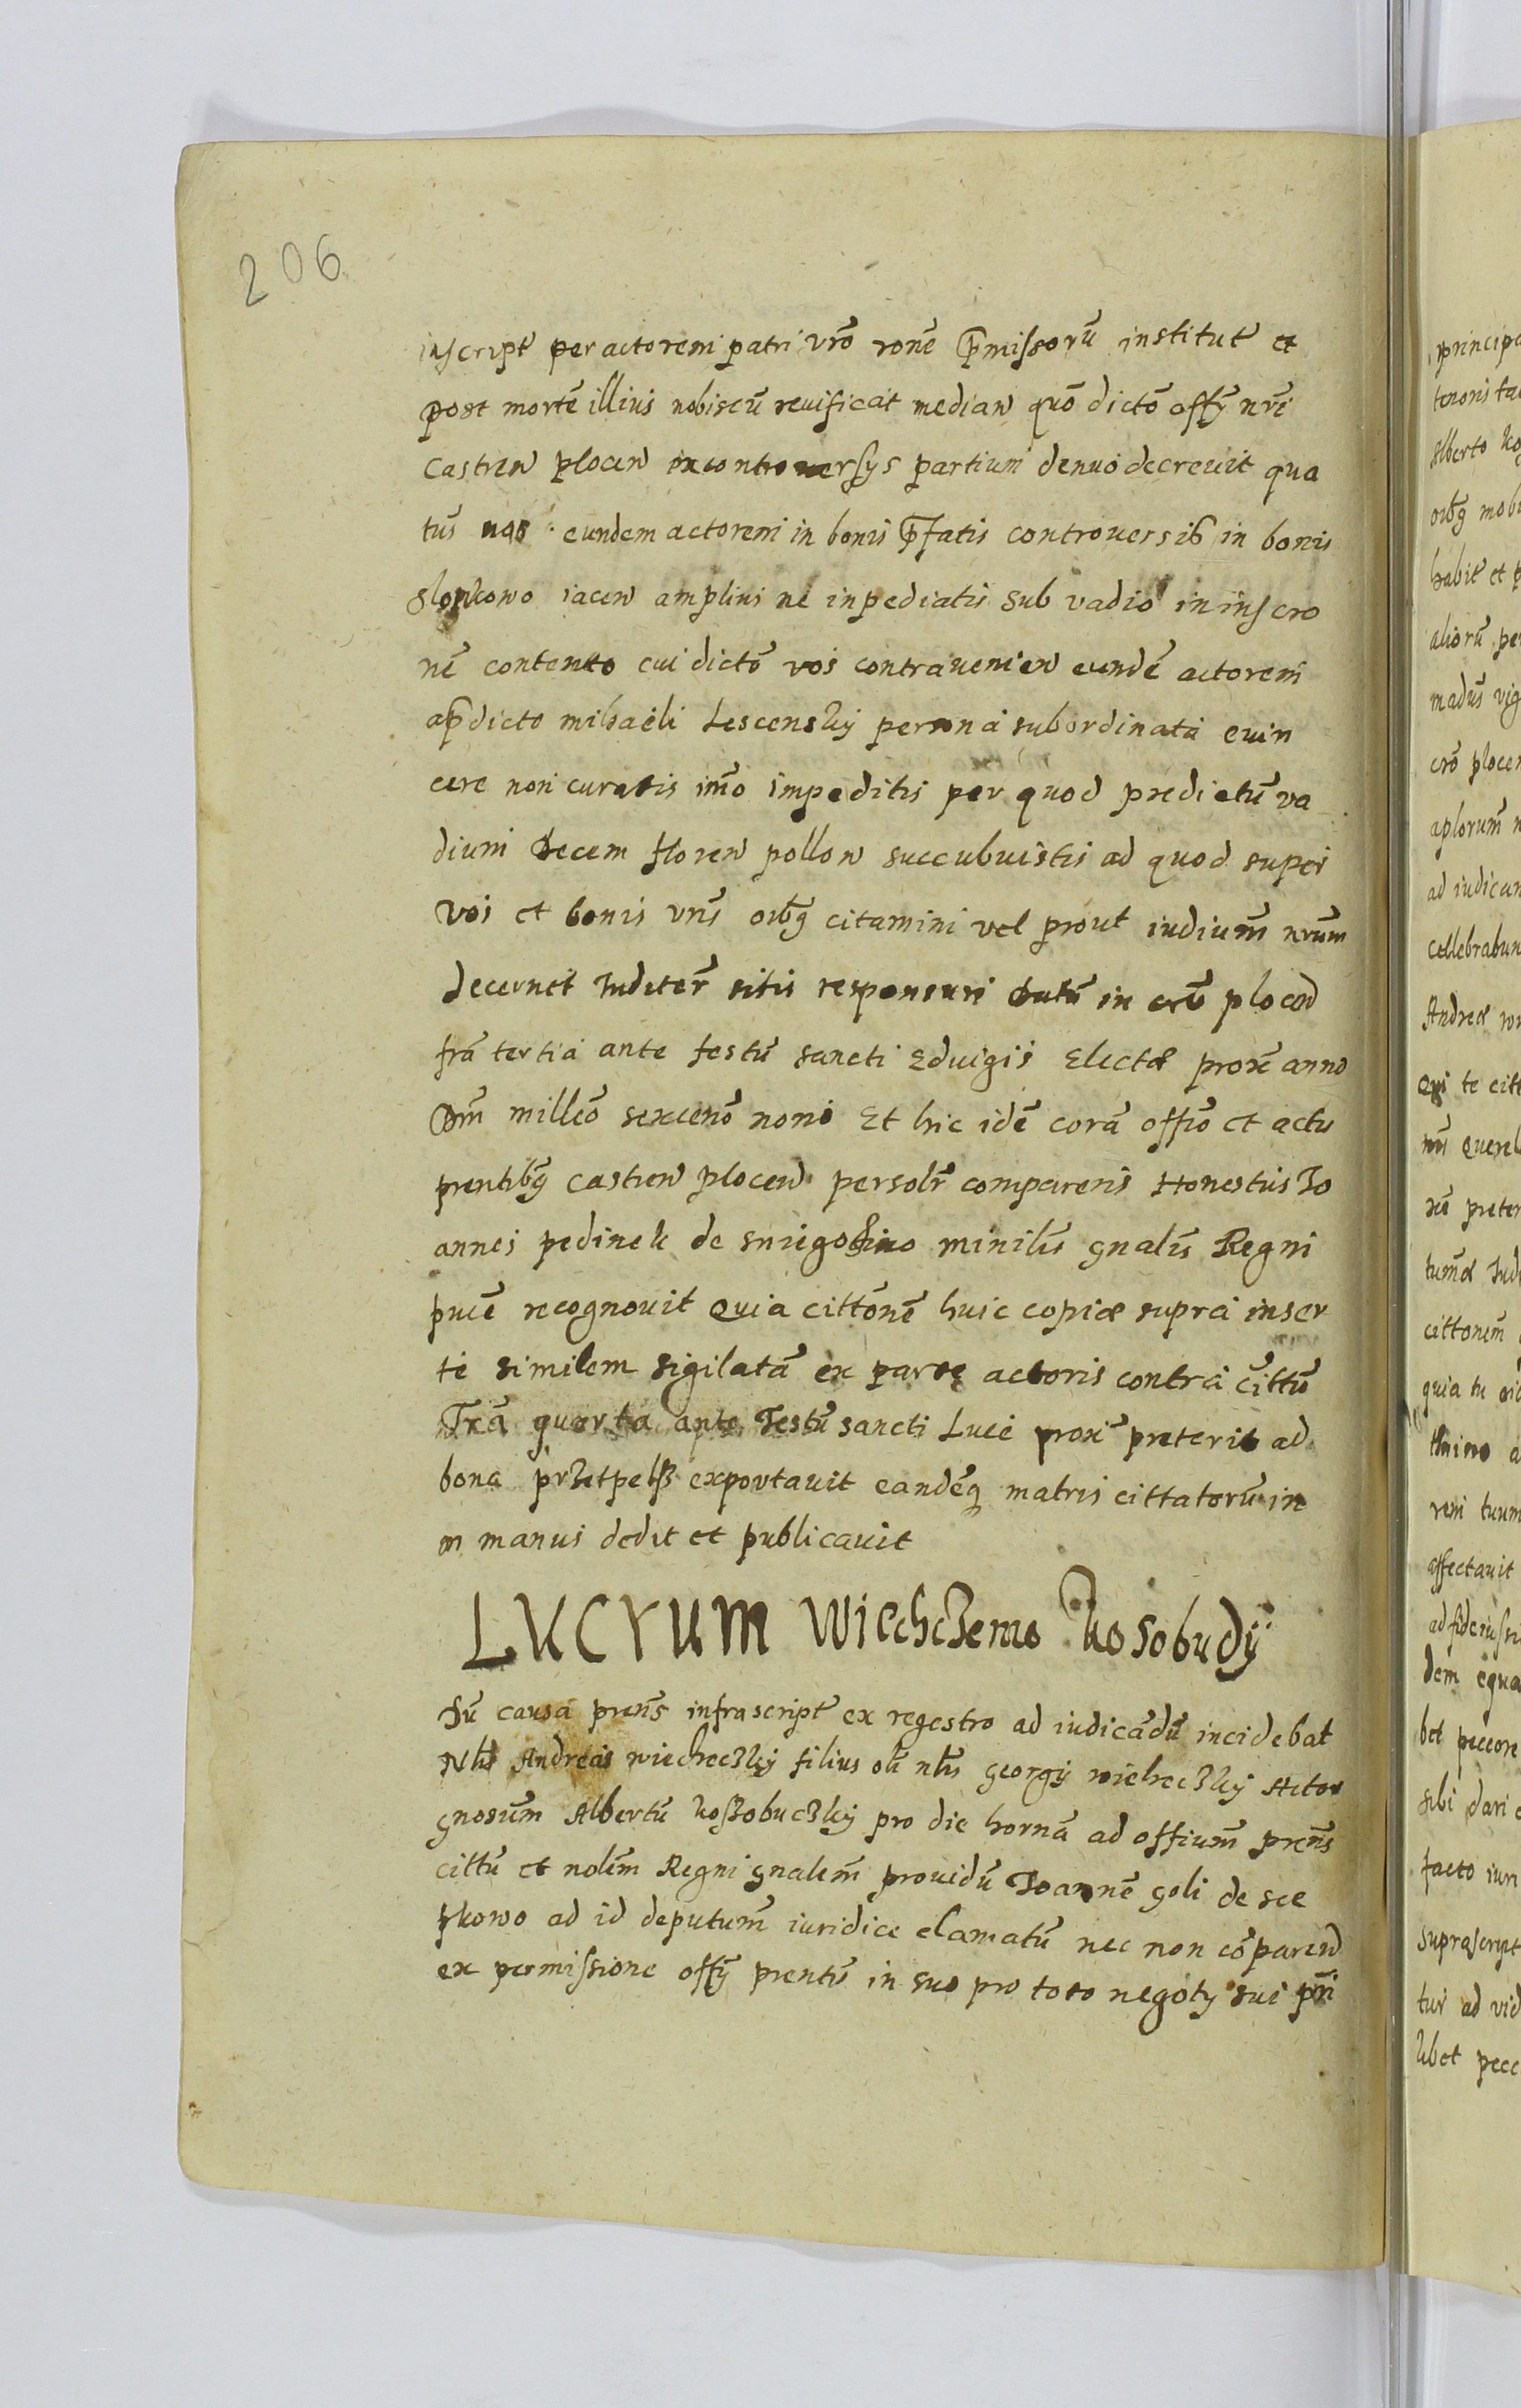 206
inscript per actorem patri vrō ronē p̄missorū institut et
post mortē illius nobiscū reuificat median quō dictō offÿ nri
castren plocen in controuersÿs partium denuo decreuit qua
tus nos eundem actorem in bonis p̄fatis controuersib in bonis
iacen amplius ne inpediatis sub vadio in inscro
nē contento cui dictō vos contrauenien eundē actorem
a p̄dicto mihaeli Lescenskÿ persona subordinata euin
cere non curatis imō impeditis per quod predictū va
dium decem floren pollon succubuistis ad quod super
vos et bonis vris oibq citamini vel prout iudiūm nrūm
decernet Juditer sitis responsuri datū in crō plocen
fra tertia ante festū sancti Eduigis Electæ prox anno
Dni milleō sexcenō nono Et hic idē corā offio et actu
prentibq castren plocen personlr comparens Honestus Jo
annes pedinek de minilis gnalis Regni
pnce recognouit Quia cittonē huic copiæ supra inser
te similem sigilatā ex parte actoris contra cittū
Frā quarta ante Festū sancti Luce prox preterit ad
bona exportauit eandēq matris cittatorū in
m manus dedit et publicauit
LUCRUM Wiechczemo Kosobudÿ
In causa prens infrascript ex regestro ad iudicādū incidebat
Nls Andreas wiecheczkÿ filius oli nlis georgÿ wiecheczkÿ Actor
gnosum Albertū koszobuczkÿ pro die hornā ad offium prens
cittū et nolem Regni gnalem prouidū Joannē goli de sce
pkowo ad id deputūm iuridice clamatū nec non cōparen
ex permissione offÿ prentis in suo pro toto negotÿ sui pri
princip
tenoris ta
Alberto ko
oibq mob
habit et p
aliorū pe
madus vig
crō plocen
aplorum n
ad iudican
cellebrabun
Andreæ
Qui te citt
querel
preter
Jud
cittonem
quia tu
rem tuum
affectauit
ad fideiussi
dem equa
bet peccore
sibi dari
facto iuri
suprascript
tur ad vid
libet pecc